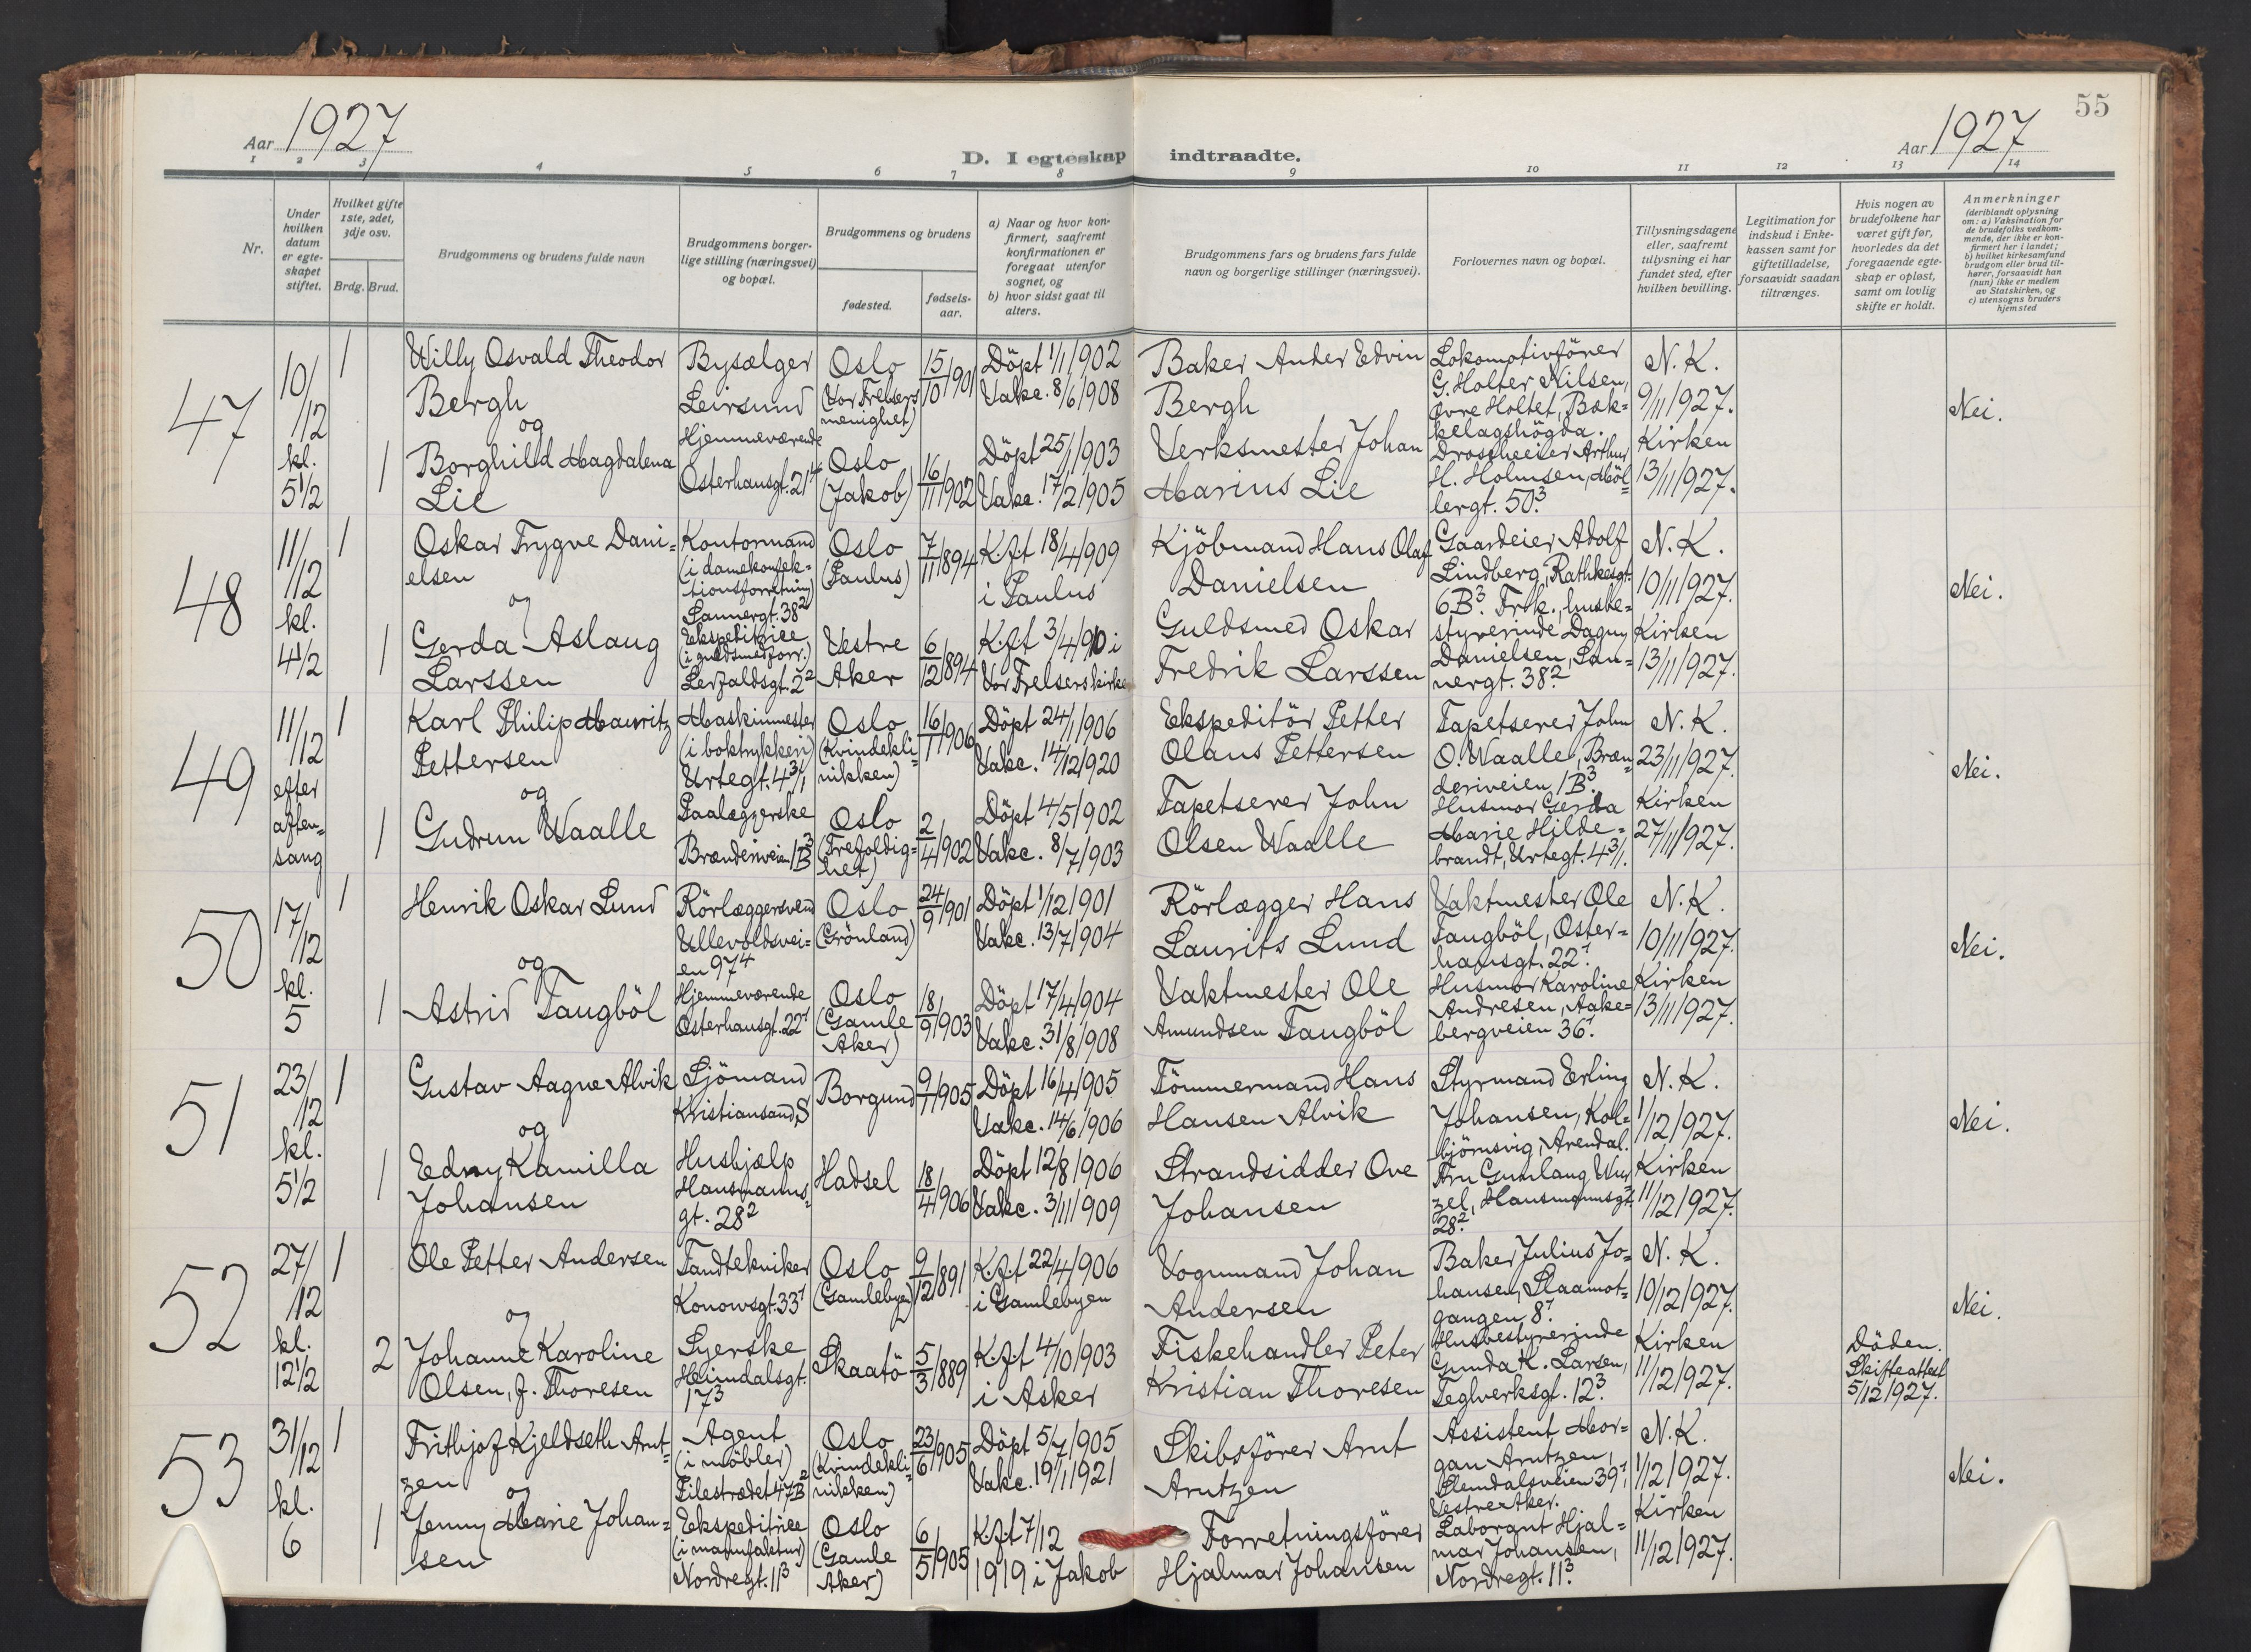 55
Aar 1927
Aar 1927
D. I egteskap indtraadte.
1 2 3 4 5 6 7 8 9 10 11 12 13 14
Nr.
Under hvilken datum er egteskapet stiftet.
Hvilket gifte 1ste, 2det, 3dje osv.
Brdg. Brud.
Brudgommens og brudens fulde navn
Brudgommens borgerlige stilling (næringsvei) og bopæl.
Brudgommens og brudens
fødested.
fødselsaar.
a) Naar og hvor konfirmert, saafremt konfirmationen er foregaat utenfor sognet, og
b) hvor sidst gaat til alters.
Brudgommens fars og brudens fars fulde navn og borgerlige stillinger (næringsvei).
Forlovernes navn og bopæl.
Tillysningsdagene eller, saafremt tillysning ei har fundet sted, efter hvilken bevilling.
Legitimation for indskud i Enkekassen samt for giftetilladelse, forsaavidt saadan tiltrænges.
Hvis nogen av brudefolkene har været gift før, hvorledes da det foregaaende egteskap er opløst, samt om lovlig skifte er holdt.
Anmerkninger
(deriblandt oplysning om: a) Vaksination for de brudefolks vedkommende, der ikke er konfirmert her i landet; b) hvilket kirkesamfund brudgom eller brud tilhører, forsaavidt han (hun) ikke er medlem av Statskirken, og c) utensogns bruders hjemsted
47
10/12 kl. 5 1/2
1
Willy Osvald Theodor
Bergh
og
Bysælger
Leirsund
Oslo
(Vor Frelsers
menighet)
15/10 1901
Döpt 1/1 1902
Vakc. 8/6 1908
Baker Ander Edvin
Bergh
Lokomotivförer
G. Holter Nilsen,
Övre Holtet, Bæk=
kelagshögda.
N. K.
9/11 1927.
Nei.
1
Borghild Magdalena
Lie
Hjemmeværende
Osterhausgt. 21 4
Oslo
(Jakob)
16/11 1902
Döpt 25/1 1903
Vakc. 17/2 1905
Verksmester Johan
Marius Lie
Droscheeier Arthur
H. Holmsen, Möl=
lergt. 50 3.
Kirken
13/11 1927.
48
11/12 kl. 4 1/2
1
Oskar Trygve Dani=
elsen
og
Kontormand
(i damekonfek=
tionsforretning)
Sannergt. 38 2
Oslo
(Paulus)
7/11 1894
K.f.t 18/4 1909
i Paulus
Kjöbmand Hans Olaf
Danielsen
Gaardeier Adolf
Lindberg, Rathkesgt.
6B 3. Frk., husbe=
N. K.
10/11 1927.
Nei.
1
Gerda Aslaug
Larssen
Ekspeditrice
(i guldsmedforr.)
Lerfaldsgt. 2 2
Vestre
Aker
6/12 1894
K.f.t 3/4 1910 i
Vor Frelsers kirke
Guldsmed Oskar
Fredrik Larssen
styrerinde Dagny
Danielsen, San=
nergt. 38 2.
Kirken
13/11 1927.
49
11/12 efter aften=sang
1
Karl Philip Mauritz
Pettersen
og
Maskinmester
(i boktrykkeri)
Urtegt. 4 3/1
Oslo
(Kvindekli=
nikken)
16/1 1906
Döpt 24/1 1906
Vakc. 14/12 1920
Ekspeditör Petter
Olaus Pettersen
Tapetserer John
O. Waalle, Bræn=
deriveien 1B 3.
N. K.
23/11 1927.
Nei.
1
Gudrun Waalle
Paalæggerske
Brænderiveien 1B 3
Oslo
(Trefoldig=
het)
2/4 1902
Döpt 4/5 1902
Vakc. 8/7 1903
Tapetserer John
Olsen Waalle
Husmor Gerda
Marie Hilde=
brandt, Urtegt. 4 3/1.
Kirken
27/11 1927.
50
17/12 kl. 5
1
Henrik Oskar Lund
og
Rörlæggersvend
Ullevoldsvei=
en 97 4
Oslo
(Grönland)
24/9 1901
Döpt 1/12 1901
Vakc. 13/7 1904
Rörlægger Hans
Laurits Lund
Vaktmester Ole
Taugböl, Oster=
hausgt. 22 1.
N. K.
10/11 1927.
Nei.
1
Astrid Taugböl
Hjemmeværende
Osterhausgt. 22 1
Oslo
(Gamle
Aker)
18/9 1903
Döpt 17/4 1904
Vakc. 31/8 1908
Vaktmester Ole
Amundsen Taugböl
Husmor Karoline
Andresen, Aake=
bergveien 36 1.
Kirken
13/11 1927.
51
23/12 kl. 5 1/2
1
Gustav Aagne Alvik
og
Sjömand
Kristiansand S
Borgund
9/1 1905
Döpt 16/4 1905
Vakc. 14/6 1906
Tömmermand Hans
Hansen Alvik
Styrmand Erling
Johansen, Kol=
björnsvig, Arendal.
N. K.
1/12 1927.
Nei.
1
Edny Kamilla
Johansen
Hushjælp
Hausmanns=
gt. 28 2
Hadsel
18/4 1906
Döpt 12/8 1906
Vakc. 3/11 1909
Strandsidder Ove
Johansen
Fru Gunlaug Wur
zel, Hausmannsgt.
28 2.
Kirken
11/12 1927.
52
27/12 kl. 12 1/2
1
Ole Petter Andersen
og
Tandtekniker
Konowsgt. 33 1
Oslo
(Gamlebyen)
9/12 1891
K.f.t 22/4 1906
i Gamlebyen
Vognmand Johan
Andersen
Baker Julius Jo=
hansen, Plaamot=
gangen 8 1.
N. K.
10/12 1927.
Nei.
2
Johanne Karoline
Olsen, f. Thoresen
Syerske
Heimdalsgt.
17 3
Skaatö
5/3 1889
K.f.t 4/10 1903
i Asker
Fiskehandler Peter
Kristian Thoresen
Husbestyrerinde
Gunda K. Larsen,
Teglverksgt. 12 3.
Kirken
11/12 1927.
Döden.
Skifteattest
5/12 1927.
53
31/12 kl. 6
1
Frithjof Kjeldseth Arnt=
zen
og
Agent
(i möbler)
Pilestrædet 47B 2
Oslo
(Kvindekli=
nikken)
23/6 1905
Döpt 5/7 1905
Vakc. 19/1 1921
Skibsförer Arnt
Arntzen
Assistent Mor=
gan Arntzen,
Slemdalsveien 39 1,
Vestre Aker.
N. K.
1/12 1927.
Nei.
1
Jenny Marie Johan=
sen
Ekspeditrice
(i manufaktur)
Nordregt. 11 3
Oslo
(Gamle
Aker)
6/5 1905
K.f.t 7/12
1919 i Jakob
Forretningsförer
Hjalmar Johansen
Laborant Hjal=
mar Johansen,
Nordregt. 11 3.
Kirken
11/12 1927.